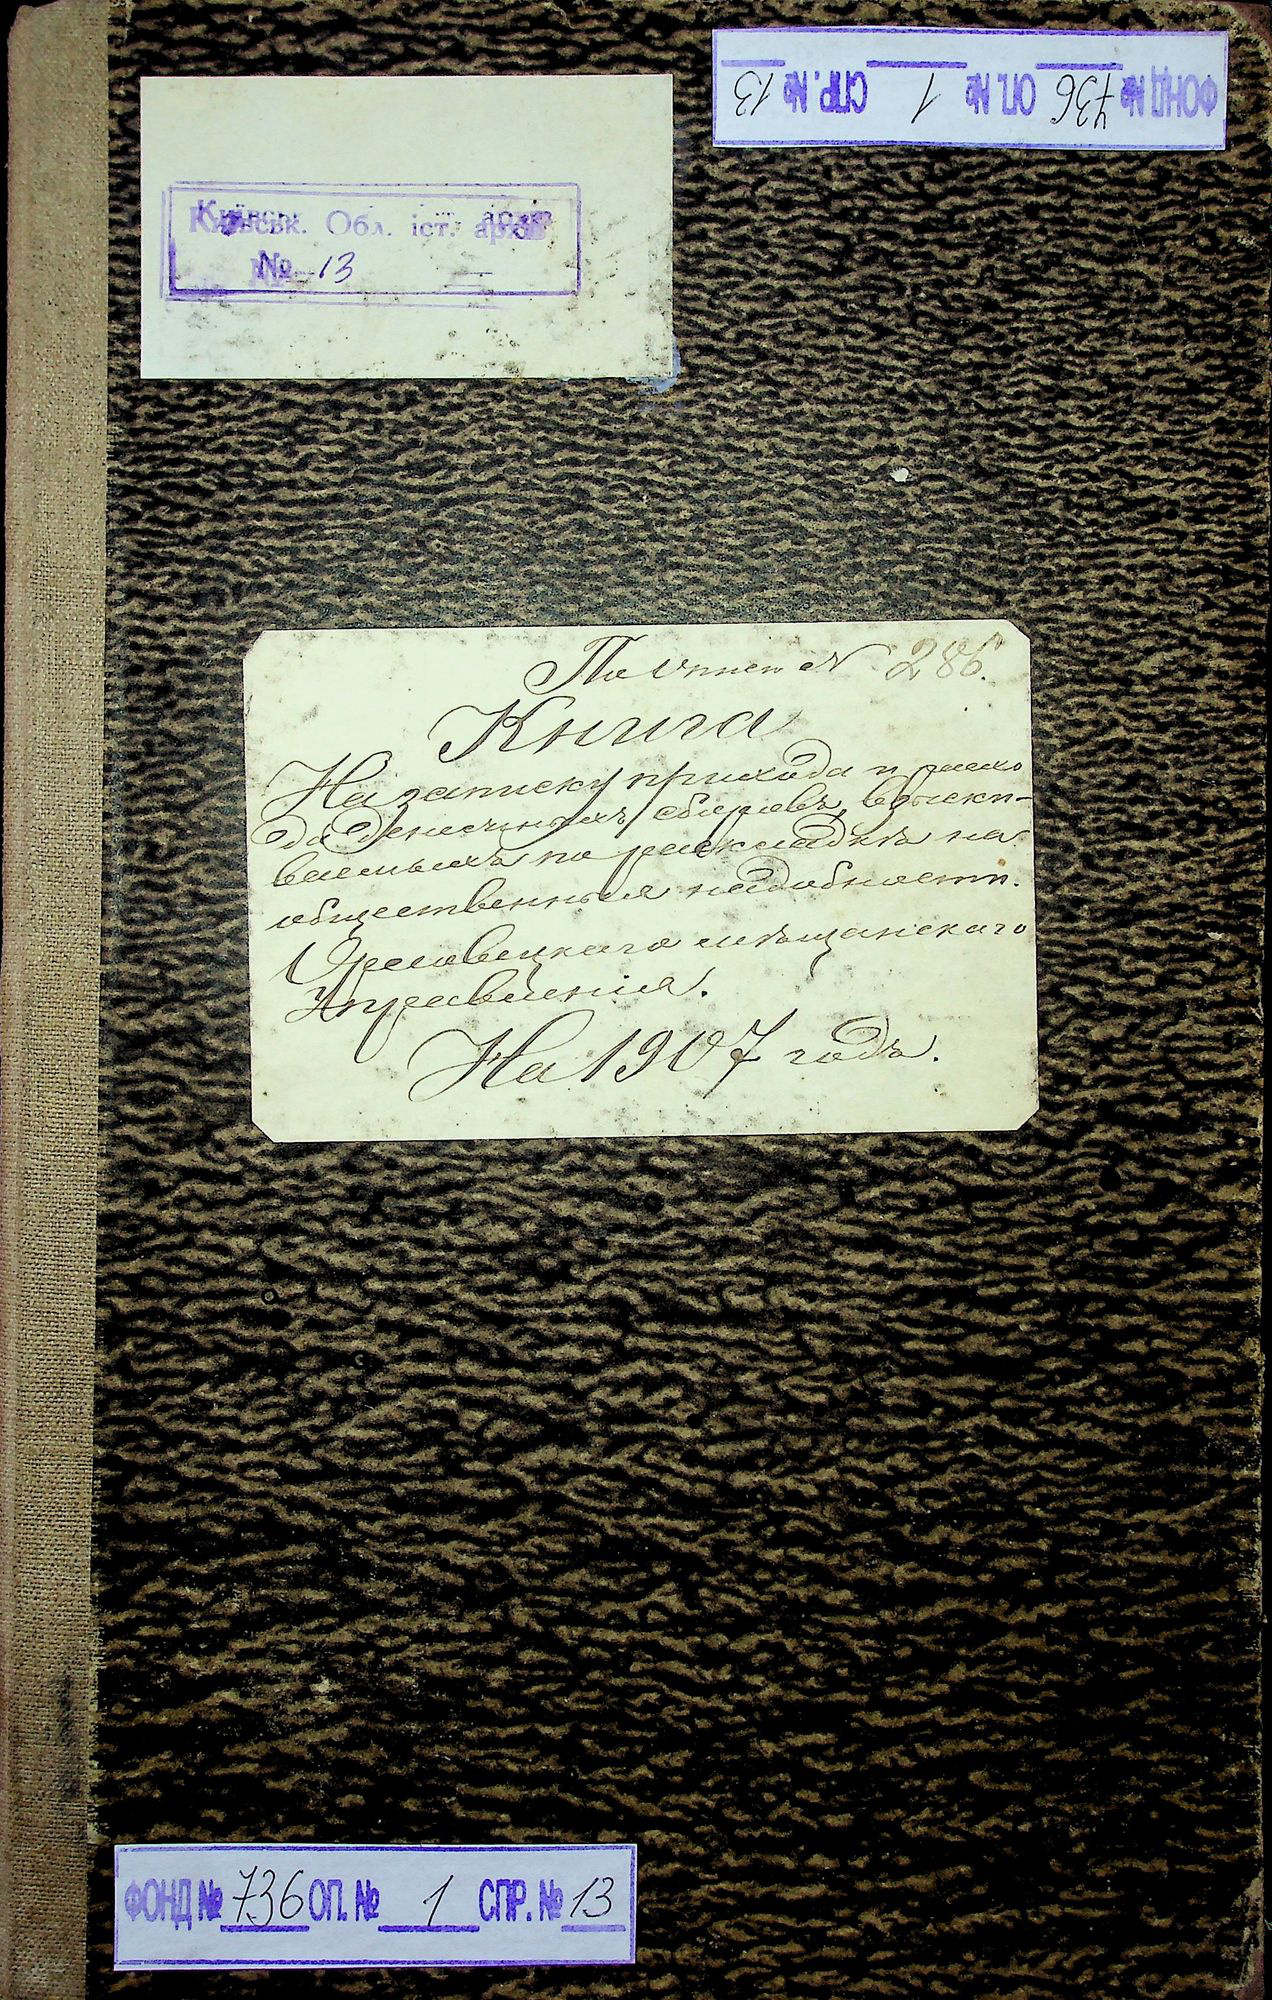 ФОНД № 736 ОП. № 1 СПР. № 13
Київськ. Обл. іст. архів
№ 13
По описи № 286.
Книга
На записку прихода и расхо
да денежныхъ сборовъ, взыски-
ваемыхъ по раскладкѣ на
общественныя надобности.
мѣщанскаго
Управленія.
На 1907 годъ.
ФОНД № 736 ОП. № 1 СПР. № 13